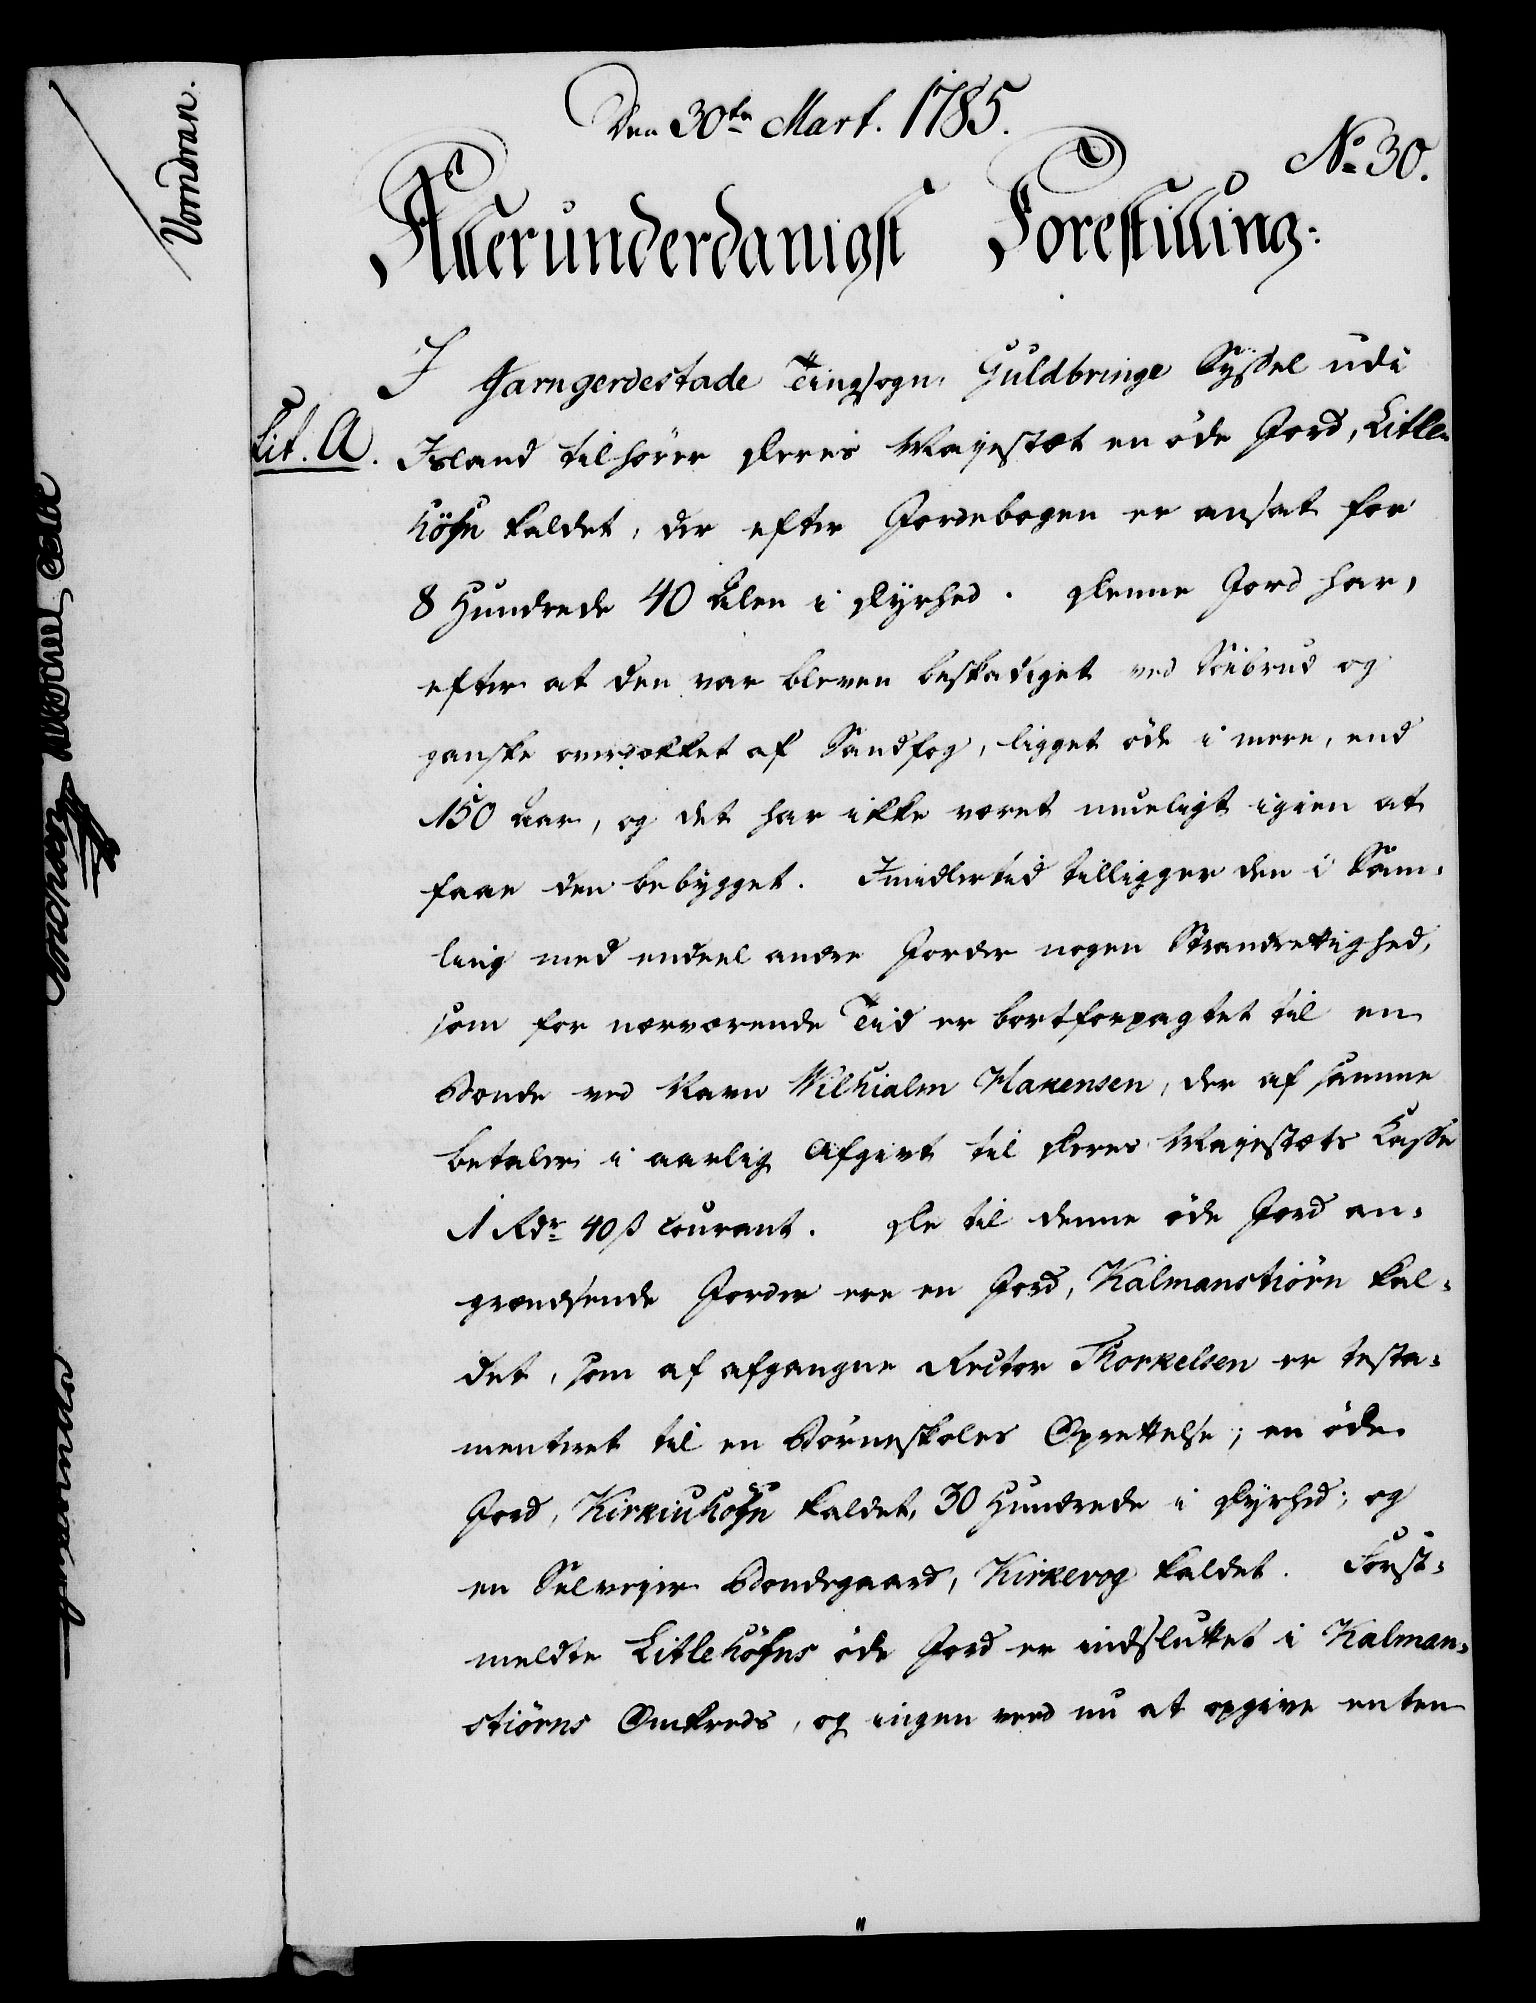 Den 30te Mart. 1785.
No 30.
Allerunderdanigst Forestilling:
I Jarngerdestade Tingsogn, Guldbringe Syssel udi
Lit. A.
Island tilhører Deres Majestæt en øde Jord, Litle-
höfn kaldet, der efter Jordebogen er ansat for
8 Hundrede 40 Alen i Dyrhed. Denne Jord har,
efter at den var bleven beskadiget ved Søebrud og
ganske overdækket af Sandfog, ligget øde i mere, end
150 Aar, og det har ikke været mueligt igien at
faae den bebygget. Imidlertid tilligger den i Sam-
ling med endeel andre Jorder nogen Strandrettighed,
som for nærværende Tiid er bortforpagtet til en
Bonde ved Navn Vilhialm Hakensen, der af samme
betaler i aarlig Afgivt til Deres Majestæts Casse
1 Rdr 40 ß Courant. De til denne øde Jord an-
grændsende Jorder ere en Jord, Kalmanstiörn kal-
det, som af afgangne Rector Thorkelsen er testa-
menteret til en Børneskoles Oprettelse; en øde
Jord, Kirkiuhöfn kaldet, 30 Hundrede i Dyrhed; og
en Selveyer Bondegaard, Kirkevog kaldet. Først-
meldte Litlehöfns øde Jord er indsluttet i Kalman-
stiörns Omkreds, og ingen veed nu at opgive enten
Vorndran.